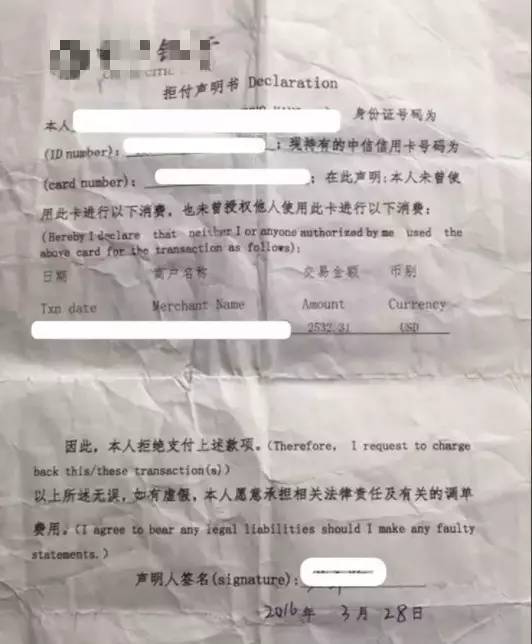 CITIC
拒付声明书 Declaration
本人 身份证号码为
(ID number): ；现持有的中信信用卡号码为
(card number): ；在此声明：本人未曾使
用此卡进行以下消费，也未曾授权他人使用此卡进行以下消费：
(Hereby I declare that neither I or anyone authorized by me used the
above card for the transaction as follows):
日期 商户名称 交易金额 币别
Txn date Merchant Name Amount Currency
2532.31 USD
因此，本人拒绝支付上述款项。(Therefore, I request to charge
back this/these transaction(s))
以上所述无误，如有虚假，本人愿意承担相关法律责任及有关的调单
费用。(I agree to bear any legal liabilities should I make any faulty
statements.)
声明人签名(signature):
2016年 3月 28日